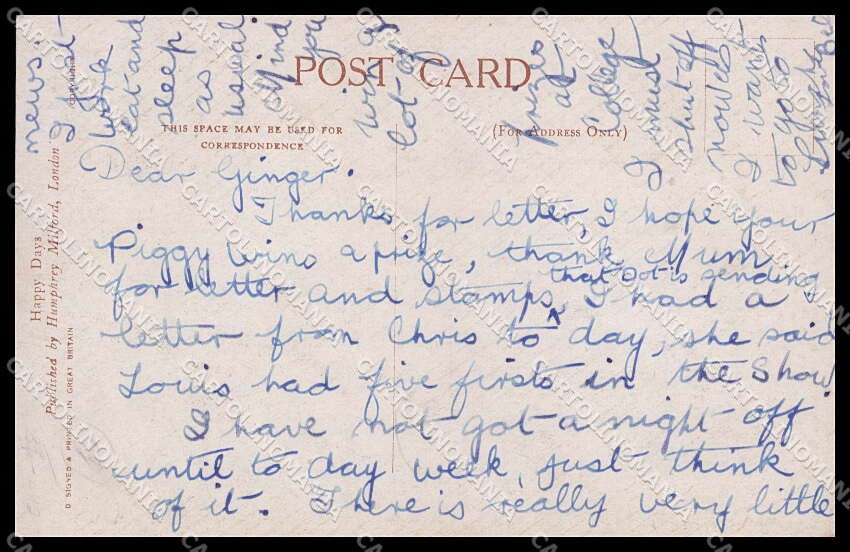 POST CARD
THIS SPACE MAY BE USED FOR
CORRESPONDENCE
(FOR ADDRESS ONLY)
Happy Days
Published by Humphrey Milford, London
DESIGNED & PRINTED IN GREAT BRITAIN
Dear Ginger.
Thanks for letter, I hope your
Piggy wins a prize, thank Mum
for letter and stamps that Dot is sending, I had a
letter from Chris to day, she said
Louis had five firsts in the Show
I have not got a night off
until to day week, just think
of it. There is really very little
news.
I eat
work
eat and
sleep
as
usual
Mind
you
win a
lot of
prizes
at
College
I must
shut off
now
I want
to go to
CARTOLINOMANIA